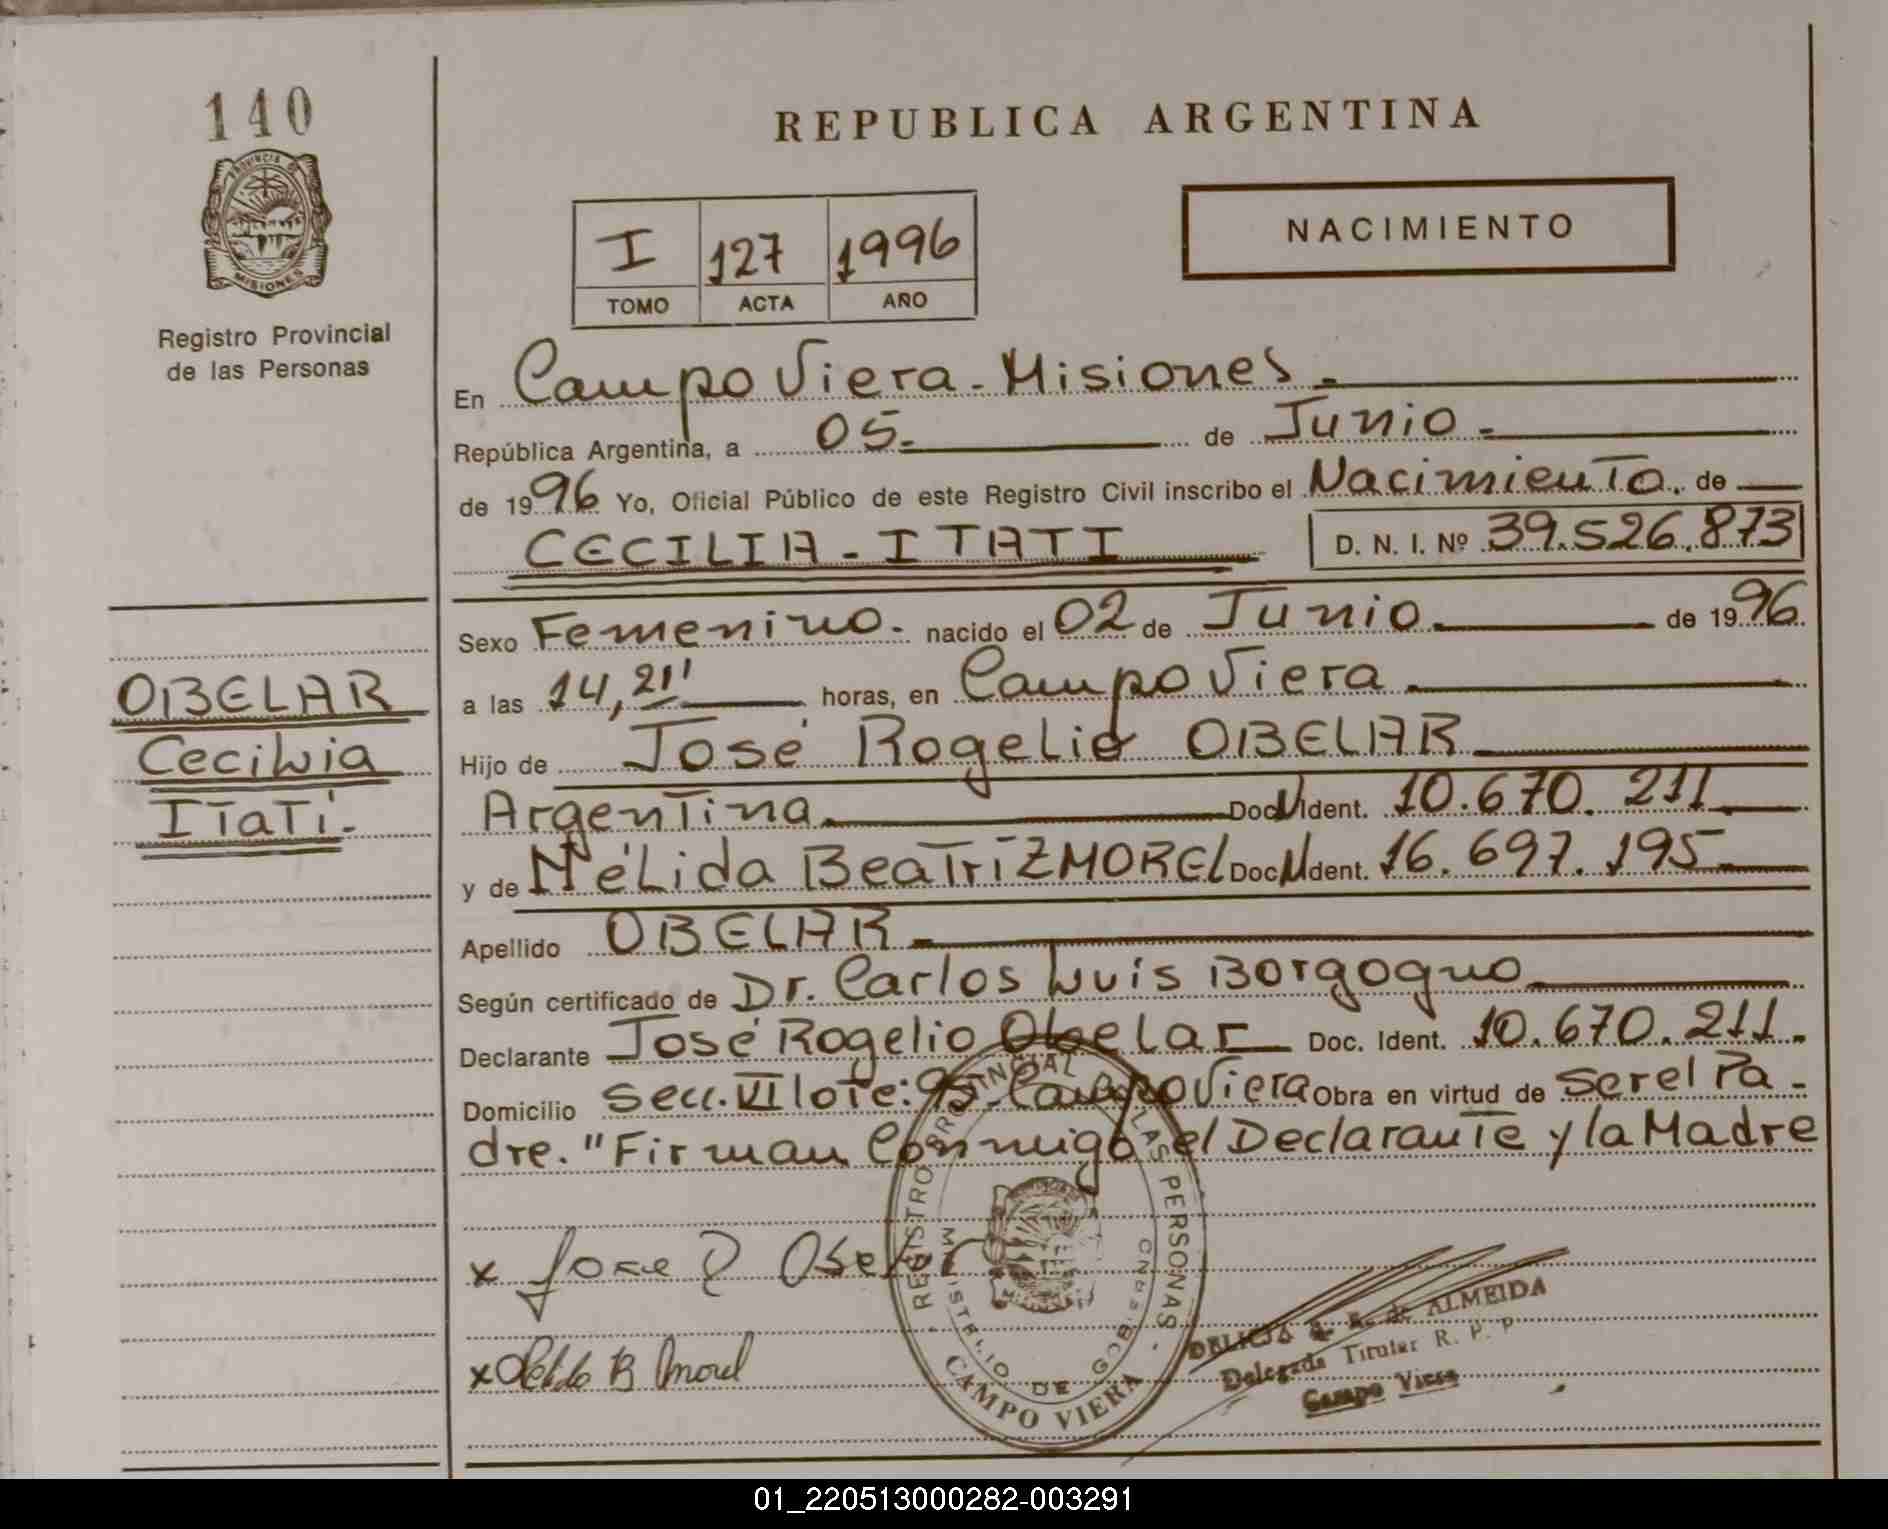 140
PROVINCIA DE
MISIONES
Registro Provincial
de las Personas
REPUBLICA ARGENTINA
NACIMIENTO
I 127 1996
TOMO ACTA AÑO
En Campo Viera - Misiones.-
República Argentina, a 05.- de Junio.-
de 1996 Yo, Oficial Público de este Registro Civil inscribo el Nacimiento. de
CECILIA - ITATI D. N. I. Nº 39.526.873
Sexo Femenino. nacido el 02 de Junio. de 1996.
a las 14,21' horas, en Campo Viera.
Hijo de José Rogelio OBELAR
Argentina. Doc. N Ident. 10.670.211
y de Nélida Beatriz MOREL Doc. N Ident. 16.697.195
Apellido OBELAR.-
Según certificado de Dr. Carlos Luis Borgogno
Declarante José Rogelio Obelar Doc. Ident. 10.670.211.
Domicilio secc. VI lote: 95. Campo Viera Obra en virtud de ser el Pa-
dre. "Firman Conmigo el Declarante y la Madre
OBELAR
Cecilia
Itatí.-
x Jose R Obelar
x Nelida B Morel
REGISTRO PROVINCIAL DE LAS PERSONAS -
MINISTERIO DE GOB.
CAMPO VIERA
DELICIA de ALMEIDA
Delegada Titular R. P. P
Campo Viera
01_220513000282-003291